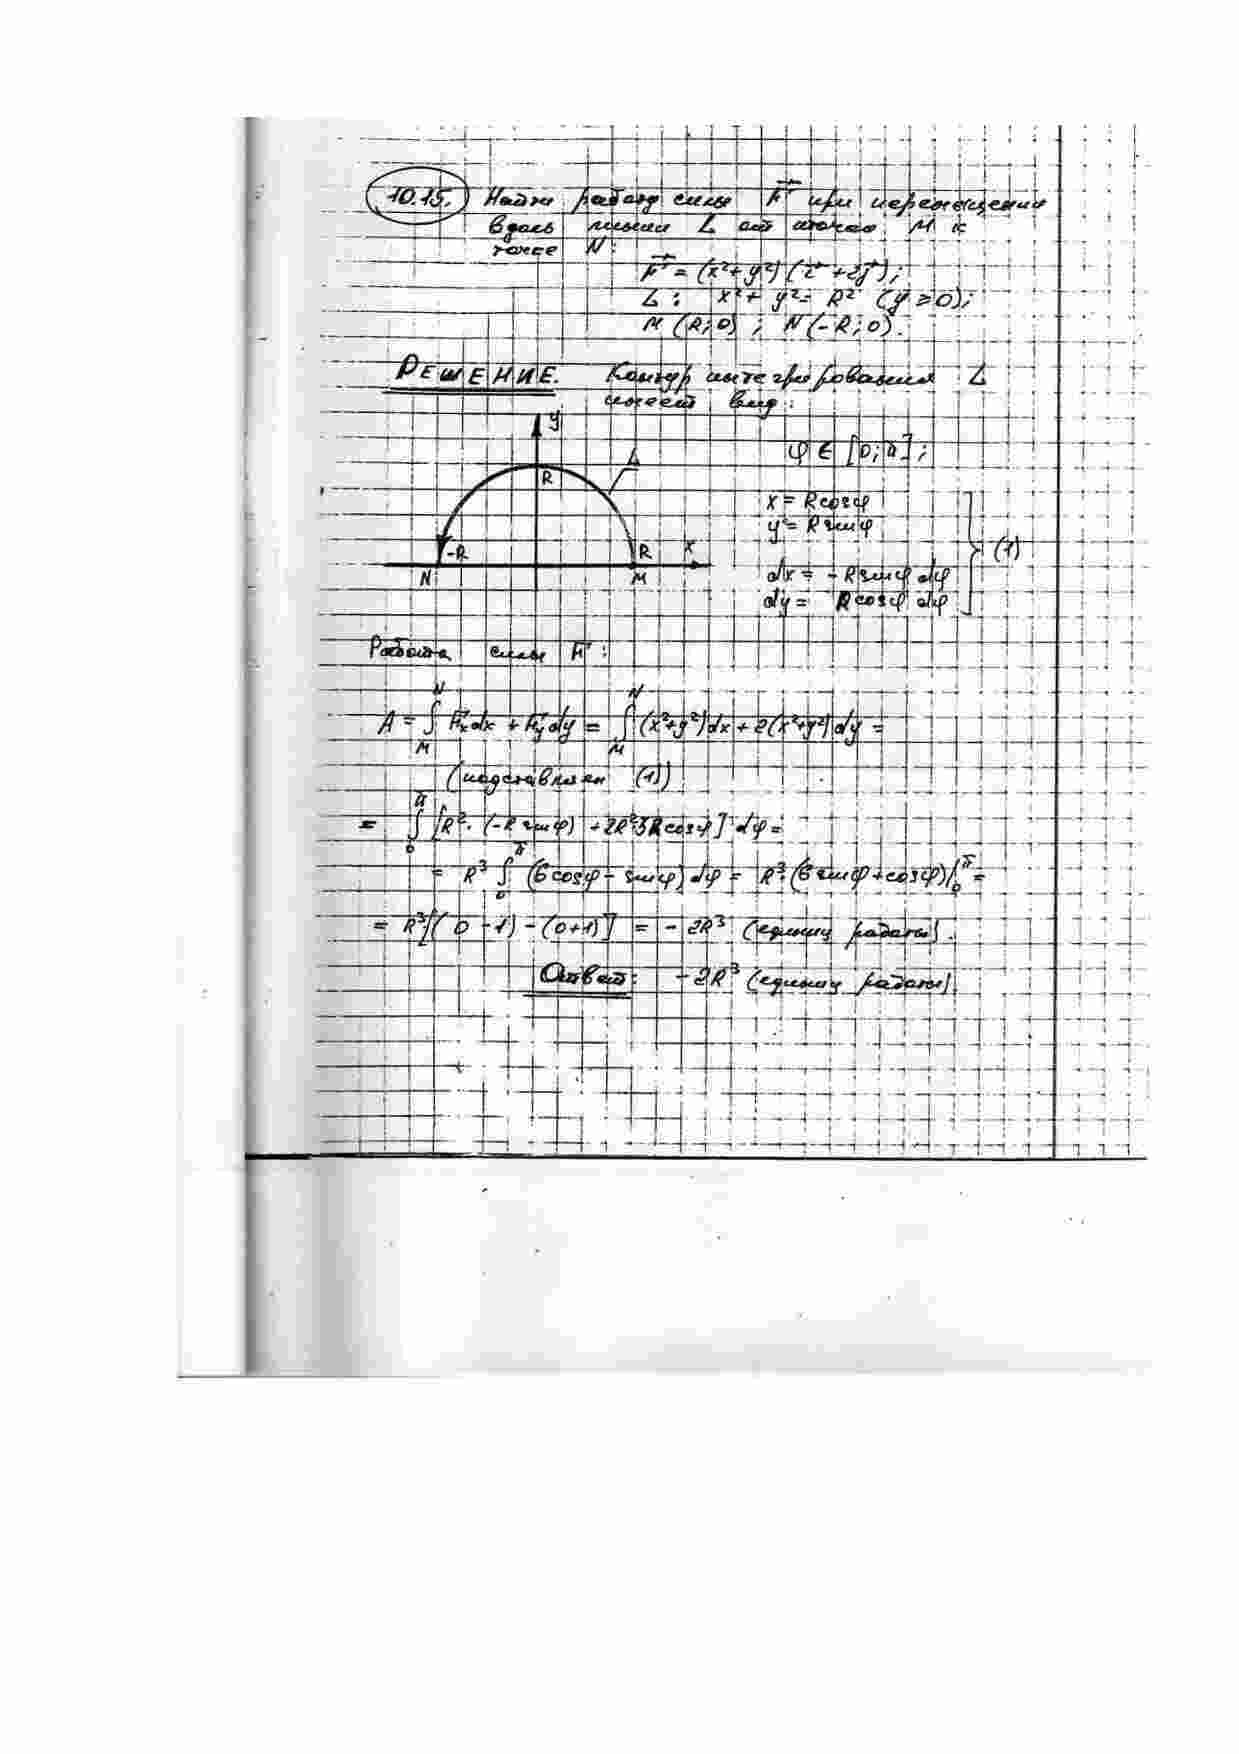 10.15. Найти работу силы F⃗ при перемещении
вдоль линии L от точки M к
точке N:
F⃗ = (x²+y²)(i⃗+2j⃗);
L: x²+y²=R² (y≥0);
M(R;0); N(-R;0).
РЕШЕНИЕ. Контур интегрирования L
имеет вид:
y
φ ∈ [0;π];
L
R
x = Rcosφ
y = Rsinφ
(1)
-R R x
N M
dx = -Rsinφ dφ
dy = Rcosφ dφ
Работа силы F⃗:
A = ∫_M^N F⃗x dx + F⃗y dy = ∫_M^N (x²+y²)dx + 2(x²+y²)dy =
(подставляем (1))
= ∫_0^π [R²·(-Rsinφ) + 2R²·3Rcosφ] dφ =
= R³ ∫_0^π (6cosφ - sinφ) dφ = R³·(6sinφ+cosφ)|_0^π =
= R³[(0-1)-(0+1)] = -2R³ (единиц работы).
Ответ: -2R³ (единиц работы).